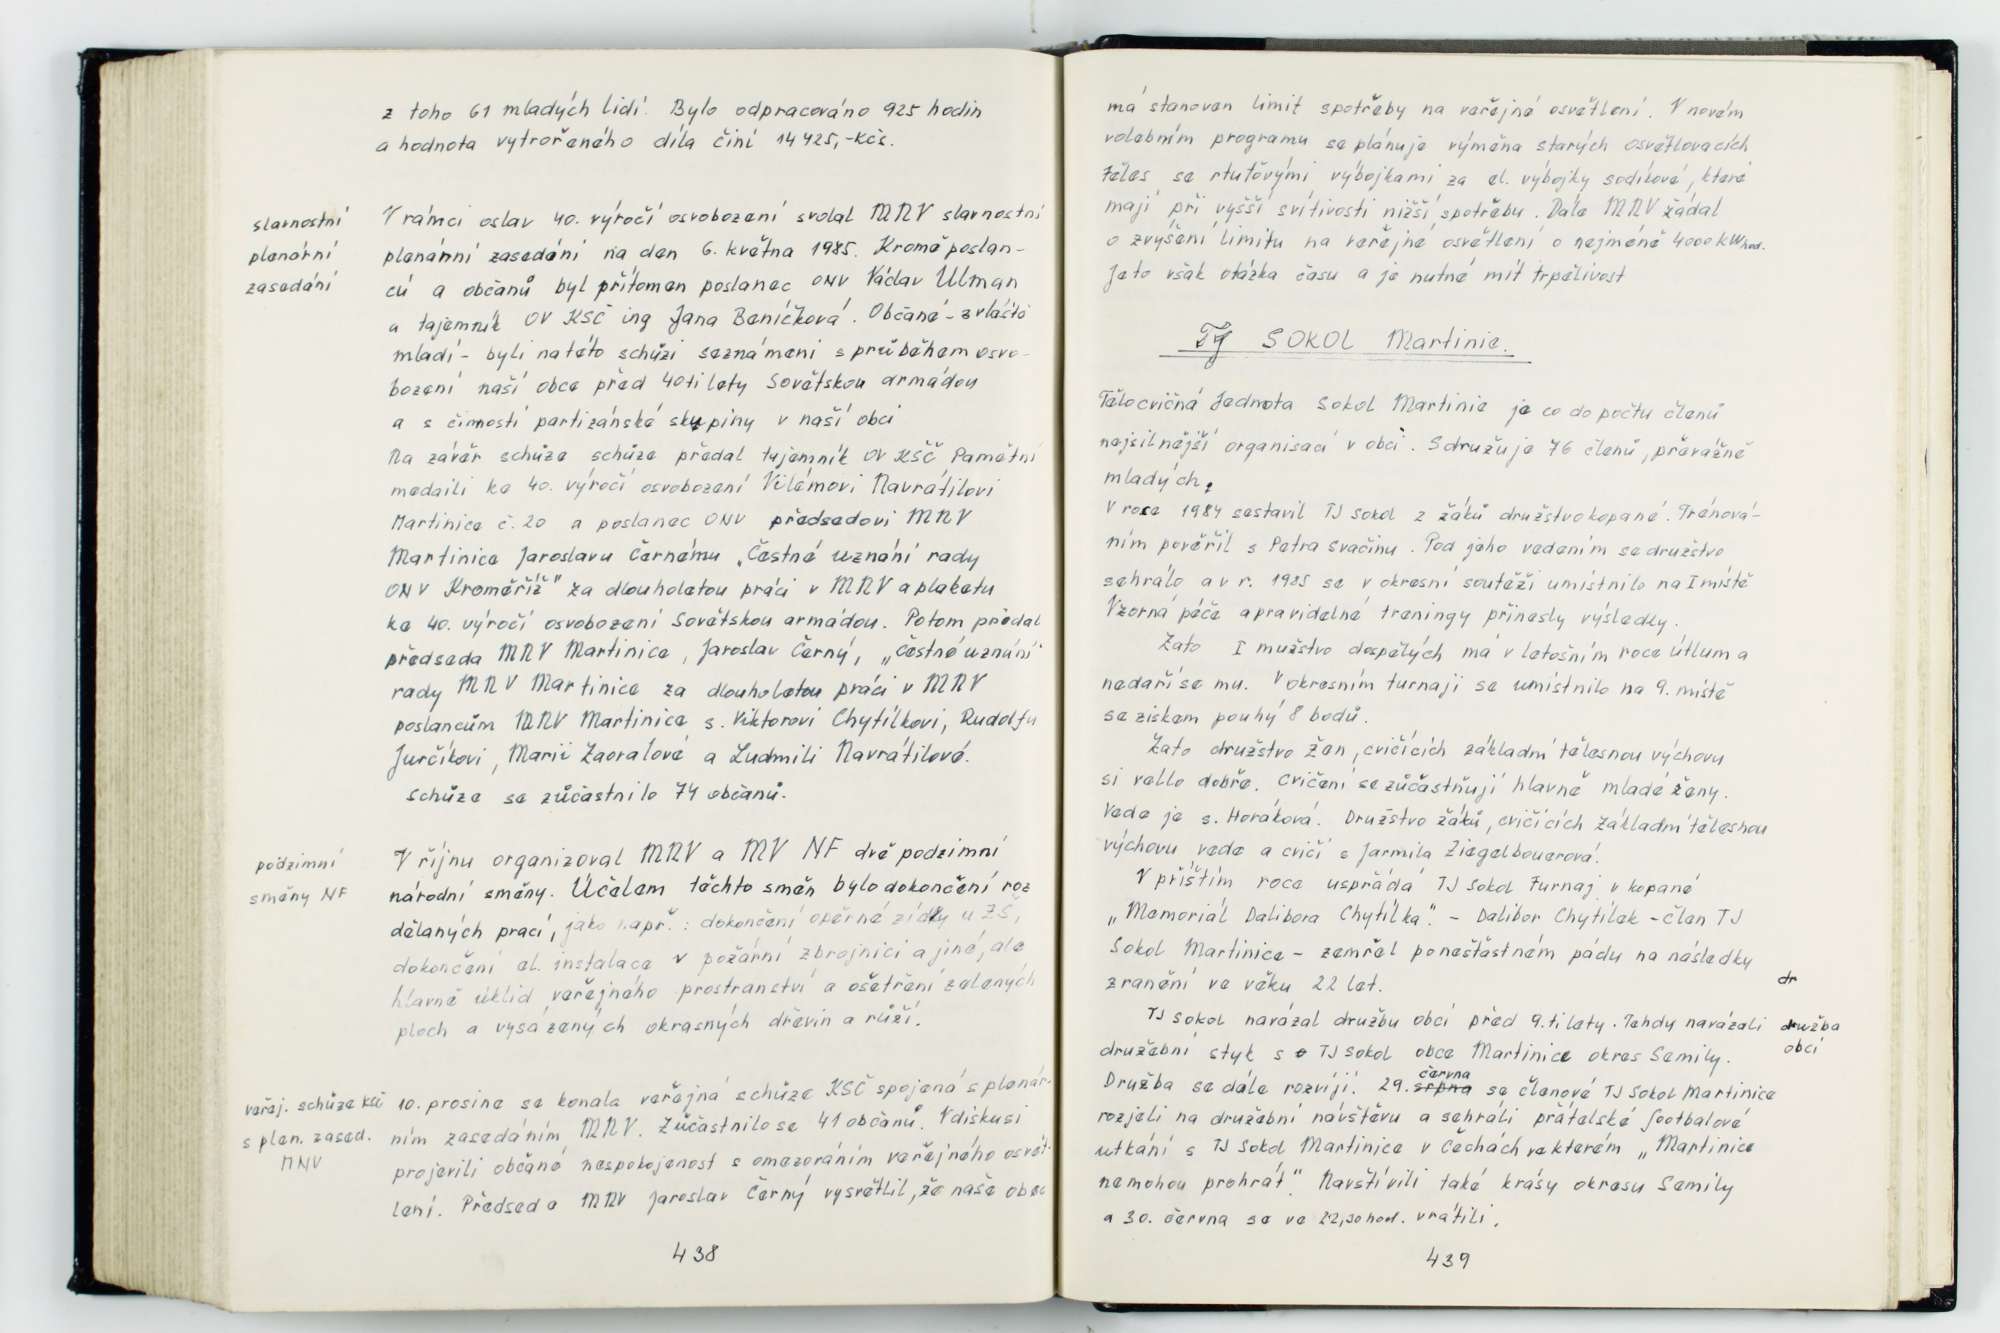 z toho 61 mladých lidí. Bylo odpracováno 925 hodin
a hodnota vytvořeného díla činí 14 425,-Kčs.
slavnostní
plenární
zasedání
V rámci oslav 40. výročí osvobození svolal MNV slavnostní
plenární zasedání na den 6. května 1985. Kromě poslan-
ců a občanů byl přítomen poslanec ONV Václav Ulman
a tajemník OV KSČ ing Jana Beníčková. Občané - zvláště
mladí - byli na této schůzi seznámeni s průběhem osvo-
bození naší obce před 40ti lety Sovětskou armádou
a s činností partizánské skupiny v naší obci
Na závěr schůze schůze předal tajemník OV KSČ Pamětní
medaili ke 40. výročí osvobození Vilémovi Navrátilovi
Martinice č. 20 a poslanec ONV předsedovi MNV
Martinice Jaroslavu Černému „Čestné uznání rady
ONV Kroměříž" za dlouholetou práci v MNV a plaketu
ke 40. výročí osvobození Sovětskou armádou. Potom předal
předseda MNV Martinice, Jaroslav Černý, „Čestné uznání"
rady MNV Martinice za dlouholetou práci v MNV
poslancům MNV Martinice s. Viktorovi Chytílkovi, Rudolfu
Jurčíkovi, Marii Zaoralové a Ludmili Navrátilové.
Schůze se zůčastnilo 74 občanů.
podzimní
směny NF
V říjnu organizoval MNV a MV NF dvě podzimní
národní směny. Účelem těchto směn bylo dokončení roz
dělaných prací, jako např. : dokončení opěrné zídky u ZŠ,
dokončení el. instalace v požární zbrojnici a jiné, ale
hlavně úklid veřejného prostranství a ošetření zelených
ploch a vysázených okrasných dřevin a růží.
veřej. schůze KSČ
s plen. zased.
MNV
10. prosince se konala veřejná schůze KSČ spojená s plenár-
ním zasedáním MNV. Zůčastnilo se 41 občanů. V diskusi
projevili občané nespokojenost s omezováním veřejného osvět-
lení. Předseda MNV Jaroslav Černý vysvětlil, že naše obec
438
má stanoven limit spotřeby na veřejné osvětlení. V novém
volebním programu se plánuje výměna starých osvětlovacích
těles se rtuťovými výbojkami za el. výbojky sodíkové, které
mají při vyšší svítivosti nižší spotřebu. Dále MNV žádal
o zvýšení limitu na veřejné osvětlení o nejméně 4000 kWhod.
Je to však otázka času a je nutné mít trpělivost
TJ SOKOL Martinic.
Tělocvičná Jednota Sokol Martinic je co do počtu členů
nejsilnější organisací v obci. Sdružuje 76 členů, převážně
mladých.
V roce 1984 sestavil TJ Sokol z žáků družstvo kopané. Trénová-
ním pověřil s Petra Svačinu. Pod jeho vedením se družstvo
sehrálo a v r. 1985 se v okresní soutěži umístnilo na I místě
Vzorná péče a pravidelné treningy přinesly výsledky.
Zato I mužstvo dospělých má v letošním roce útlum a
nedaří se mu. V okresním turnaji se umístnilo na 9. místě
se ziskem pouhý 8 bodů.
Zato družstvo žen, cvičících základní tělesnou výchovu
si vedlo dobře. Cvičení se zůčastňují hlavně mladé ženy.
Vede je s. Horáková. Družstvo žáků, cvičících základní tělesnou
výchovu vede a cvičí s Jarmila Ziegelbouerová.
V příštím roce uspřádá TJ Sokol Turnaj v kopané
„Memoriál Dalibora Chytílka". - Dalibor Chytílek - člen TJ
Sokol Martinice - zemřel po nešťastném pádu na následky
zranění ve věku 22 let.
dr
družba
obcí
TJ Sokol navázal družbu obcí před 9. ti lety. Tehdy navázali
družební styk s TJ Sokol obce Martinice okres Semily.
června
Družba se dále rozvíjí. 29. srpna se členové TJ Sokol Martinice
rozjeli na družební návštěvu a sehráli přátelské footbalové
utkání s TJ Sokol Martinice v Čechách ve kterém „Martinice
nemohou prohrát". Navštívili také krásy okresu Semily
a 30. června se ve 22,30 hod. vrátili.
439